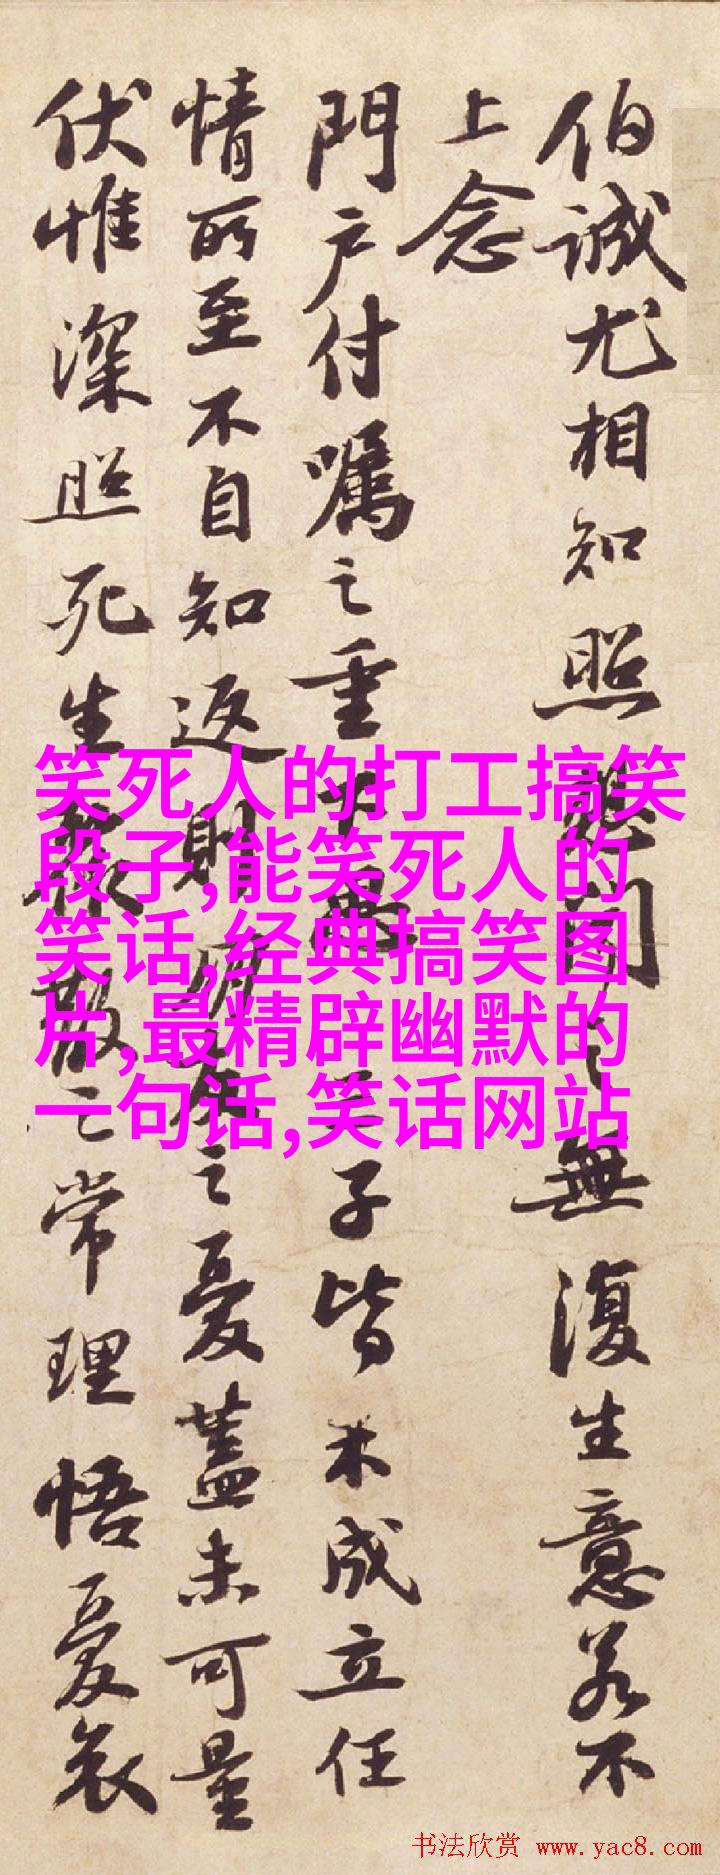 伯誠尤相知照想聞之無復生意若不
上念
門户付囑之重下爲子皆未成立任
情所至不自知返則朋友之憂蓋未可量
伏惟深照死生聚散之常理悟憂哀
笑死人的打工搞笑
段子,能笑死人的
笑话,经典搞笑图
片,最精辟幽默的
一句话,笑话网站
书法欣赏 www.yac8.com